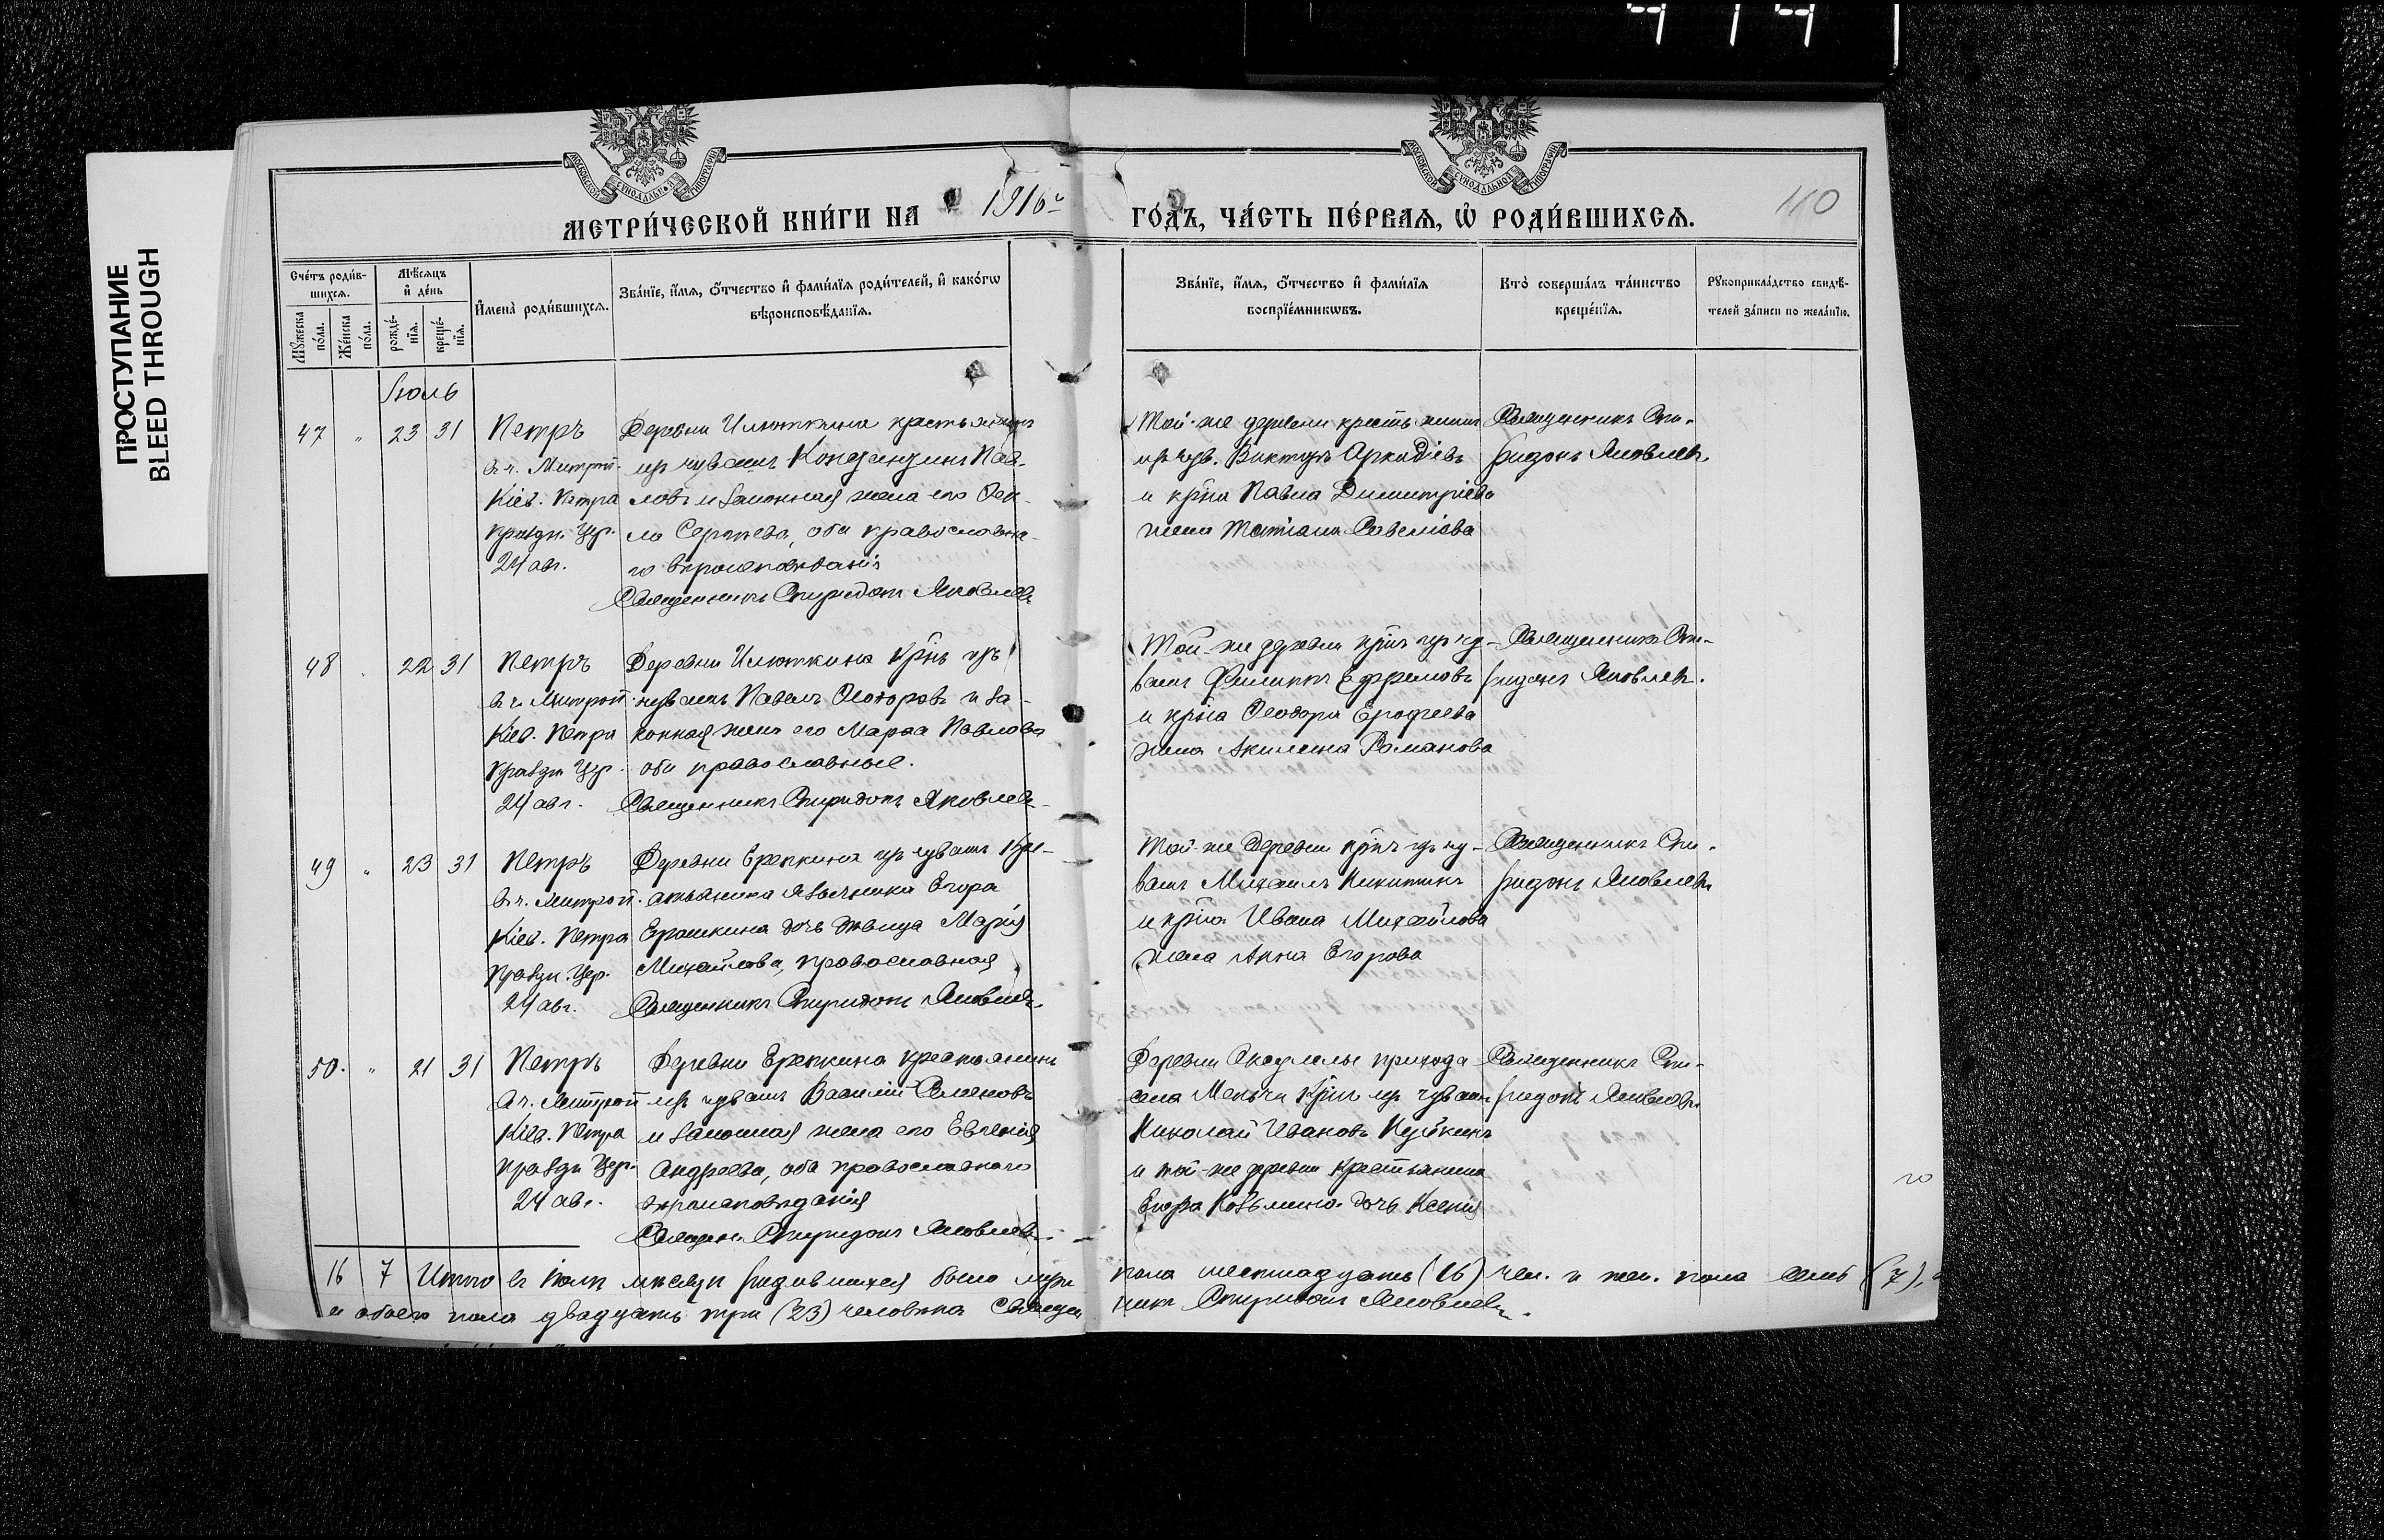 ПРОСТУПАНИЕ
BLEED THROUGH
МОСКОВСКОЙ СѴНОДАЛЬНОЙ ТИПОГРАФІИ
МОСКОВСКОЙ СѴНОДАЛЬНОЙ ТИПОГРАФІИ
МЕТРИ́ЧЕСКОЙ КНИ́ГИ НА 1916 г.
ГО́ДЪ, ЧА́СТЬ ПЕ́РВАЯ, Ѡ РОДИ́ВШИХСЯ.
110
Сче́тъ роди́в-
шихся.
Мѣ́сяцъ
и де́нь
Мꙋжеска по́ла.
Же́нска по́ла.
рожде́-
нїя.
креще́-
нїя.
И́мена̀ роди́вшихся.
Зва́нїе, и́мя, о́тчество и фами́лїя роди́телей, и како́гѡ
вѣроисповѣ́данїя.
Зва́нїе, и́мя, о́тчество и фами́лїя
воспрїе́мникѡвъ.
Кто̀ соверша́лъ та́инство
креще́нїя.
Рꙋкоприкла́дство свидѣ́-
телей за́писи по жела́нїю.
Іюль
47 " 23 31
Петръ
в ч. Митроп.
Кіев. Петра
праздн. Цер.
24 авг.
Деревни Илюткина крестьянинъ
изъ чувашъ Павловъ и законная жена его Фек-
ла Сергѣева, оба православна-
го вѣроисповѣданія
Священникъ Спиридонъ Яковлевъ
Той-же деревни крестьянинъ
изъ чув. Викторъ Аркадіевъ
и крͣна Павла Димитріева
жена Татіана Савеліева
Священникъ Спи-
ридонъ Яковлевъ.
48 " 22 31
Петръ
в ч. Митроп.
Кіев. Петра
праздн. Цер.
24 авг.
Деревни Илюткина крͣнъ изъ
чувашъ Павелъ Ѳеодоровъ и за-
конная жена его Марѳа Павлова
оба православные.
Священникъ Спиридонъ Яковлевъ
Той-же деревни крͣнъ изъ чу-
вашъ Филиппъ Ефремовъ
и крͣна Ѳеодора Ерофеева
жена Акилина Романова
Священникъ Спи-
ридонъ Яковлевъ.
49 " 23 31
Петръ
в ч. Митроп.
Кіев. Петра
праздн. Цер.
24 авг.
Деревни Ерепкина изъ чувашъ кре-
стьянина язычника Егора
Ерашкина дочь дѣвица Марія
Михайлова, православная
Священникъ Спиридонъ Яковлевъ
Той-же деревни крͣнъ изъ чу-
вашъ Михаилъ Никитинъ
и крͣна Ивана Михайлова
жена Анна Егорова
Священникъ Спи-
ридонъ Яковлевъ
50. " 21 31
Петръ
в ч. Митроп
Кіев. Петра
праздн. Цер.
24 авг.
Деревни Ерепкина крестьянинъ
изъ чувашъ Василій Семеновъ
и законная жена его Евгенія
Андреева, оба православнаго
вѣроисповѣданія
Священ. Спиридонъ Яковлевъ
Деревни прихода
села крͣнъ изъ чувашъ
Николай Ивановъ
и той-же деревни крестьянина
Егора Козьмина дочь Ксенія
Священникъ Спи-
ридонъ Яковлевъ
16 7 Итого въ Іюлѣ мѣсяцѣ родившихся было муж. пола шестнадцать (16) чел. и жен. пола семь (7), а
и обоего пола двадцать три (23) человѣка Священникъ Спиридонъ Яковлевъ.